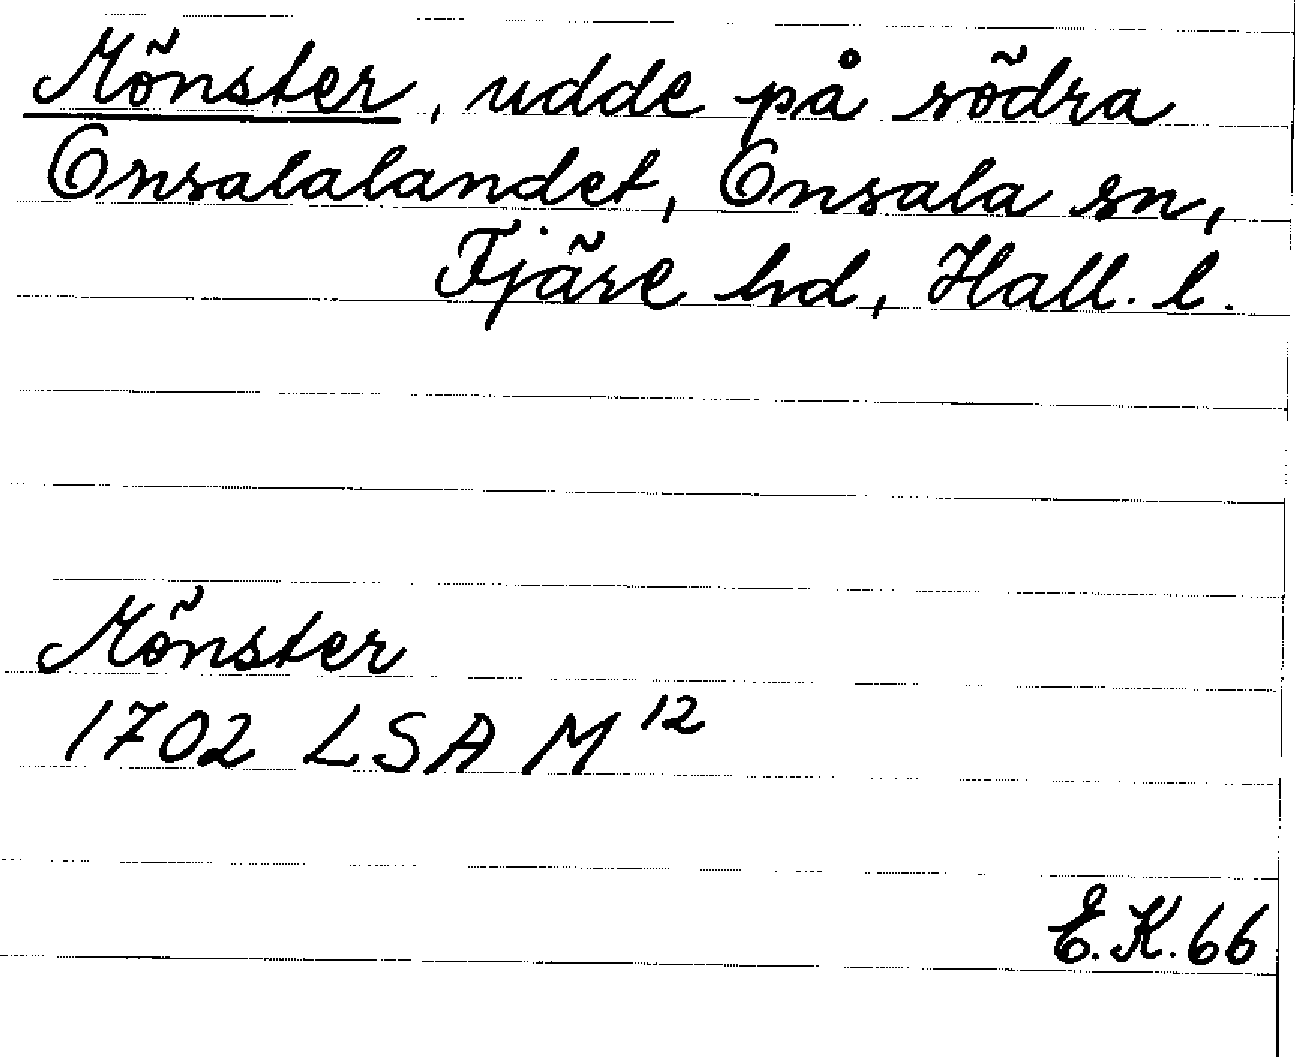 Mönster, udde på södra
Onsalalandet, Onsala sn,
Fjäre hd, Hall. l.
Mönster
1702 LSA M 12
E.K. 66